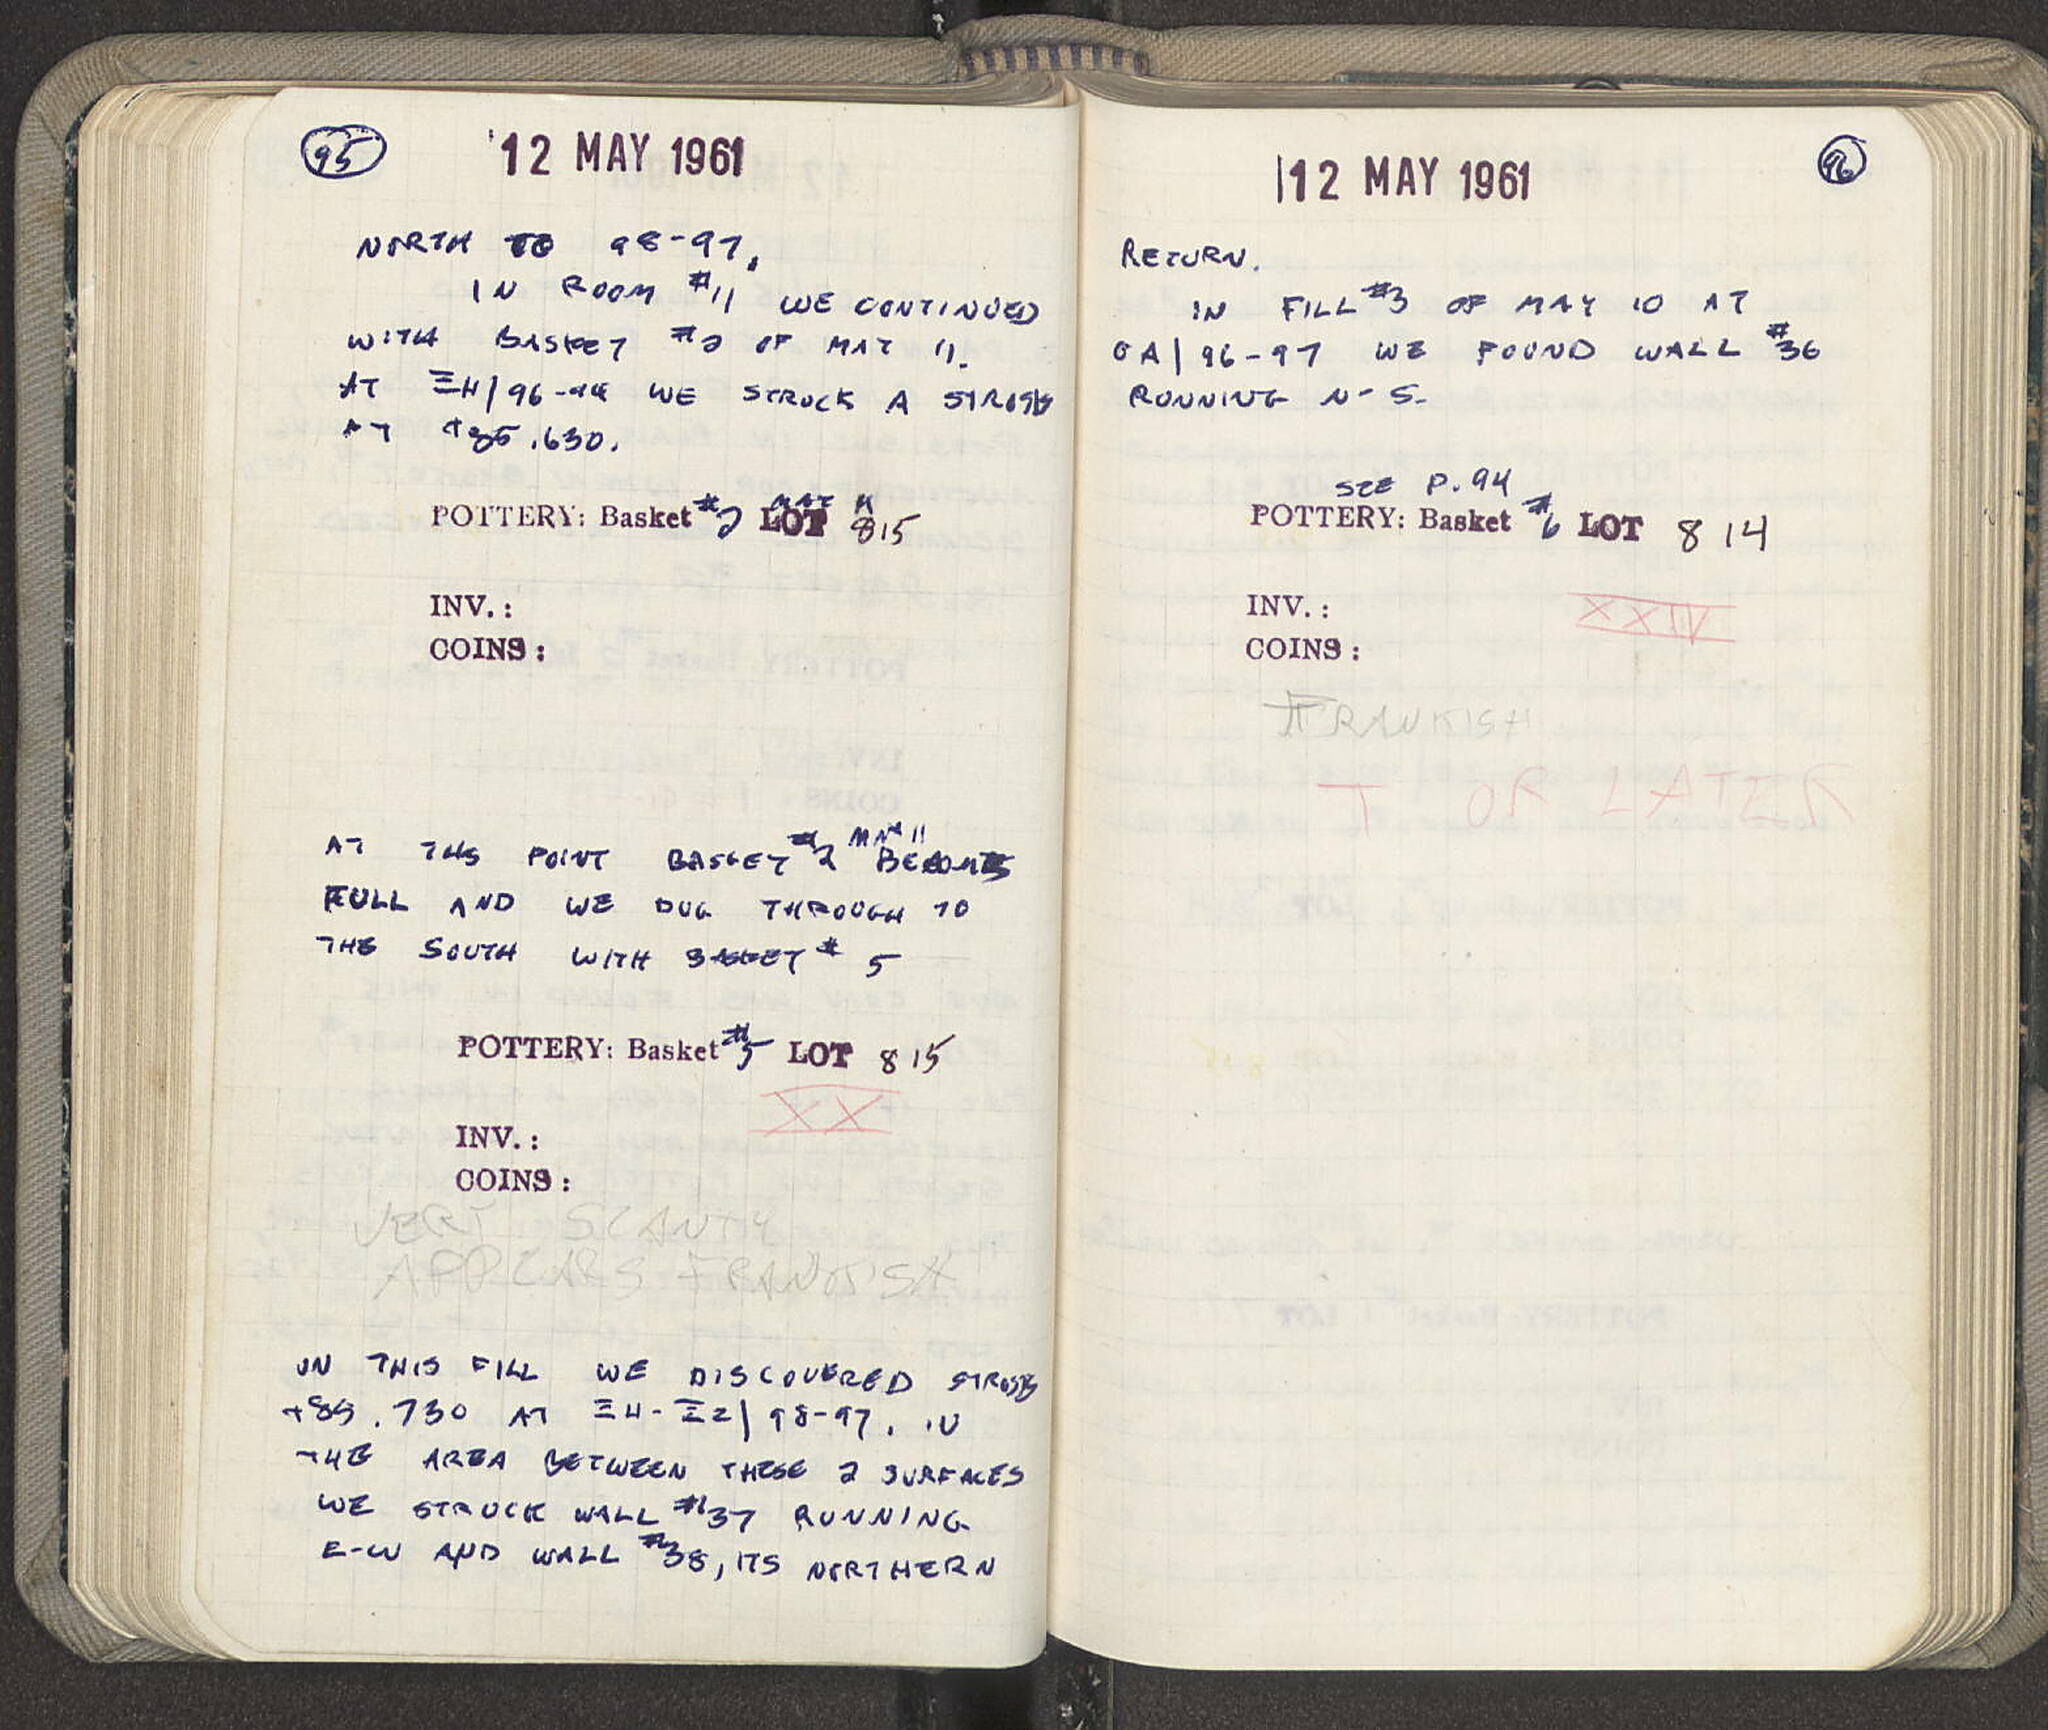 95
12 MAY 1961
NORTH TO 98-97.
IN ROOM #11 WE CONTINUED
WITH BASKET #2 OF MAY 11.
AT ΞH/96-94 WE STRUCK A STROSIS
AT +85.630.
MAY 11
POTTERY: Basket #2 LOT 815
INV.:
COINS:
AT THIS POINT BASKET #2 MAY 11 BECOMES
FULL AND WE DUG THROUGH TO
THE SOUTH WITH BASKET # 5
POTTERY: Basket #5 LOT 815
XX
INV.:
COINS:
VERY SCANTY
APPEARS FRANKISH
IN THIS FILL WE DISCOVERED STROSIS
+85.730 AT ΞH-ΞZ/98-97. IN
THE AREA BETWEEN THESE 2 SURFACES
WE STRUCK WALL #37 RUNNING
E-W AND WALL #38, ITS NORTHERN
96
12 MAY 1961
RETURN.
IN FILL #3 OF MAY 10 AT
OA/96-97 WE FOUND WALL #36
RUNNING N-S.
SEE P.94
POTTERY: Basket #6 LOT 814
INV.:
XXIV
COINS:
FRANKISH
T OR LATER